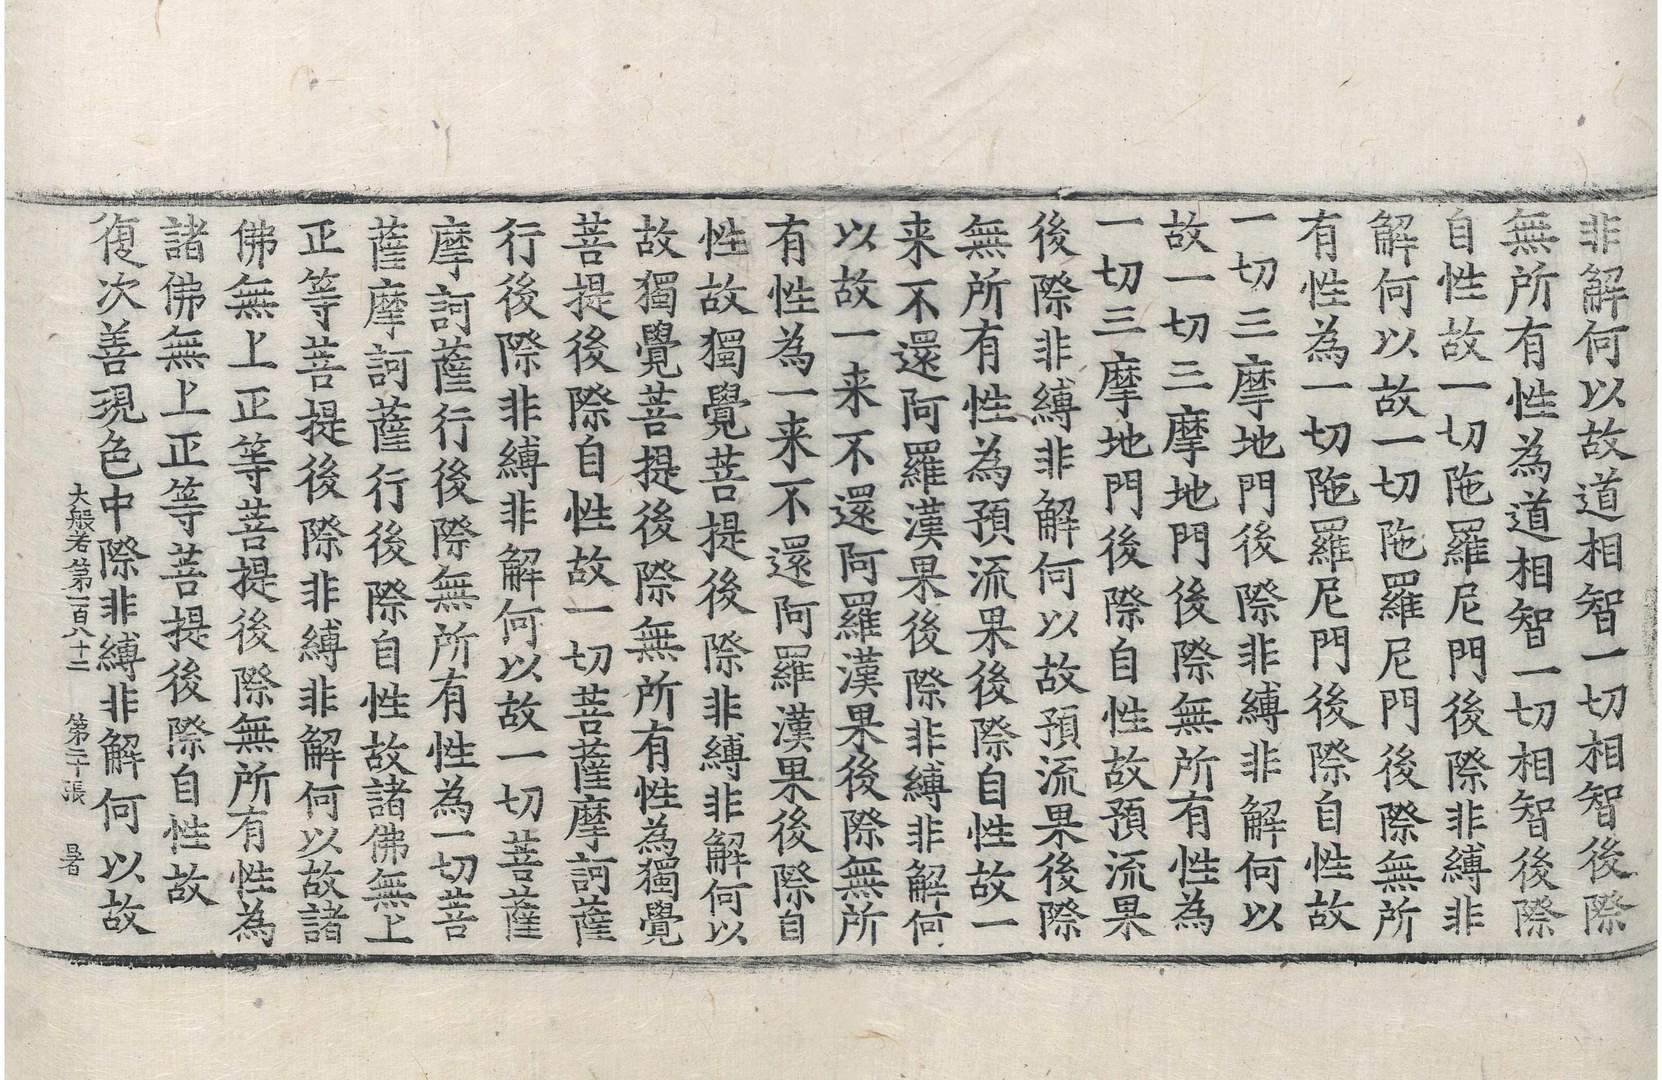 非解何以故道相智一切相智後際
無所有性為道相智一切相智後際
自性故一切陁羅尼門後際非縛非
解何以故一切陁羅尼門後際無所
有性為一切陁羅尼門後際自性故
一切三摩地門後際非縛非解何以
故一切三摩地門後際無所有性為
一切三摩地門後際自性故預流果
後際非縛非解何以故預流果後際
無所有性為預流果後際自性故一
来不還阿羅漢果後際非縛非解何
以故一来不還阿羅漢果後際無所
有性為一来不還阿羅漢果後際自
性故獨覺菩提後際非縛非解何以
故獨覺菩提後際無所有性為獨覺
菩提後際自性故一切菩薩摩訶薩
行後際非縛非解何以故一切菩薩
摩訶薩行後際無所有性為一切菩
薩摩訶薩行後際自性故諸佛無上
正等菩提後際非縛非解何以故諸
佛無上正等菩提後際無所有性為
諸佛無上正等菩提後際自性故
復次善現色中際非縛非解何以故
大般若第一百八十二 第二十張